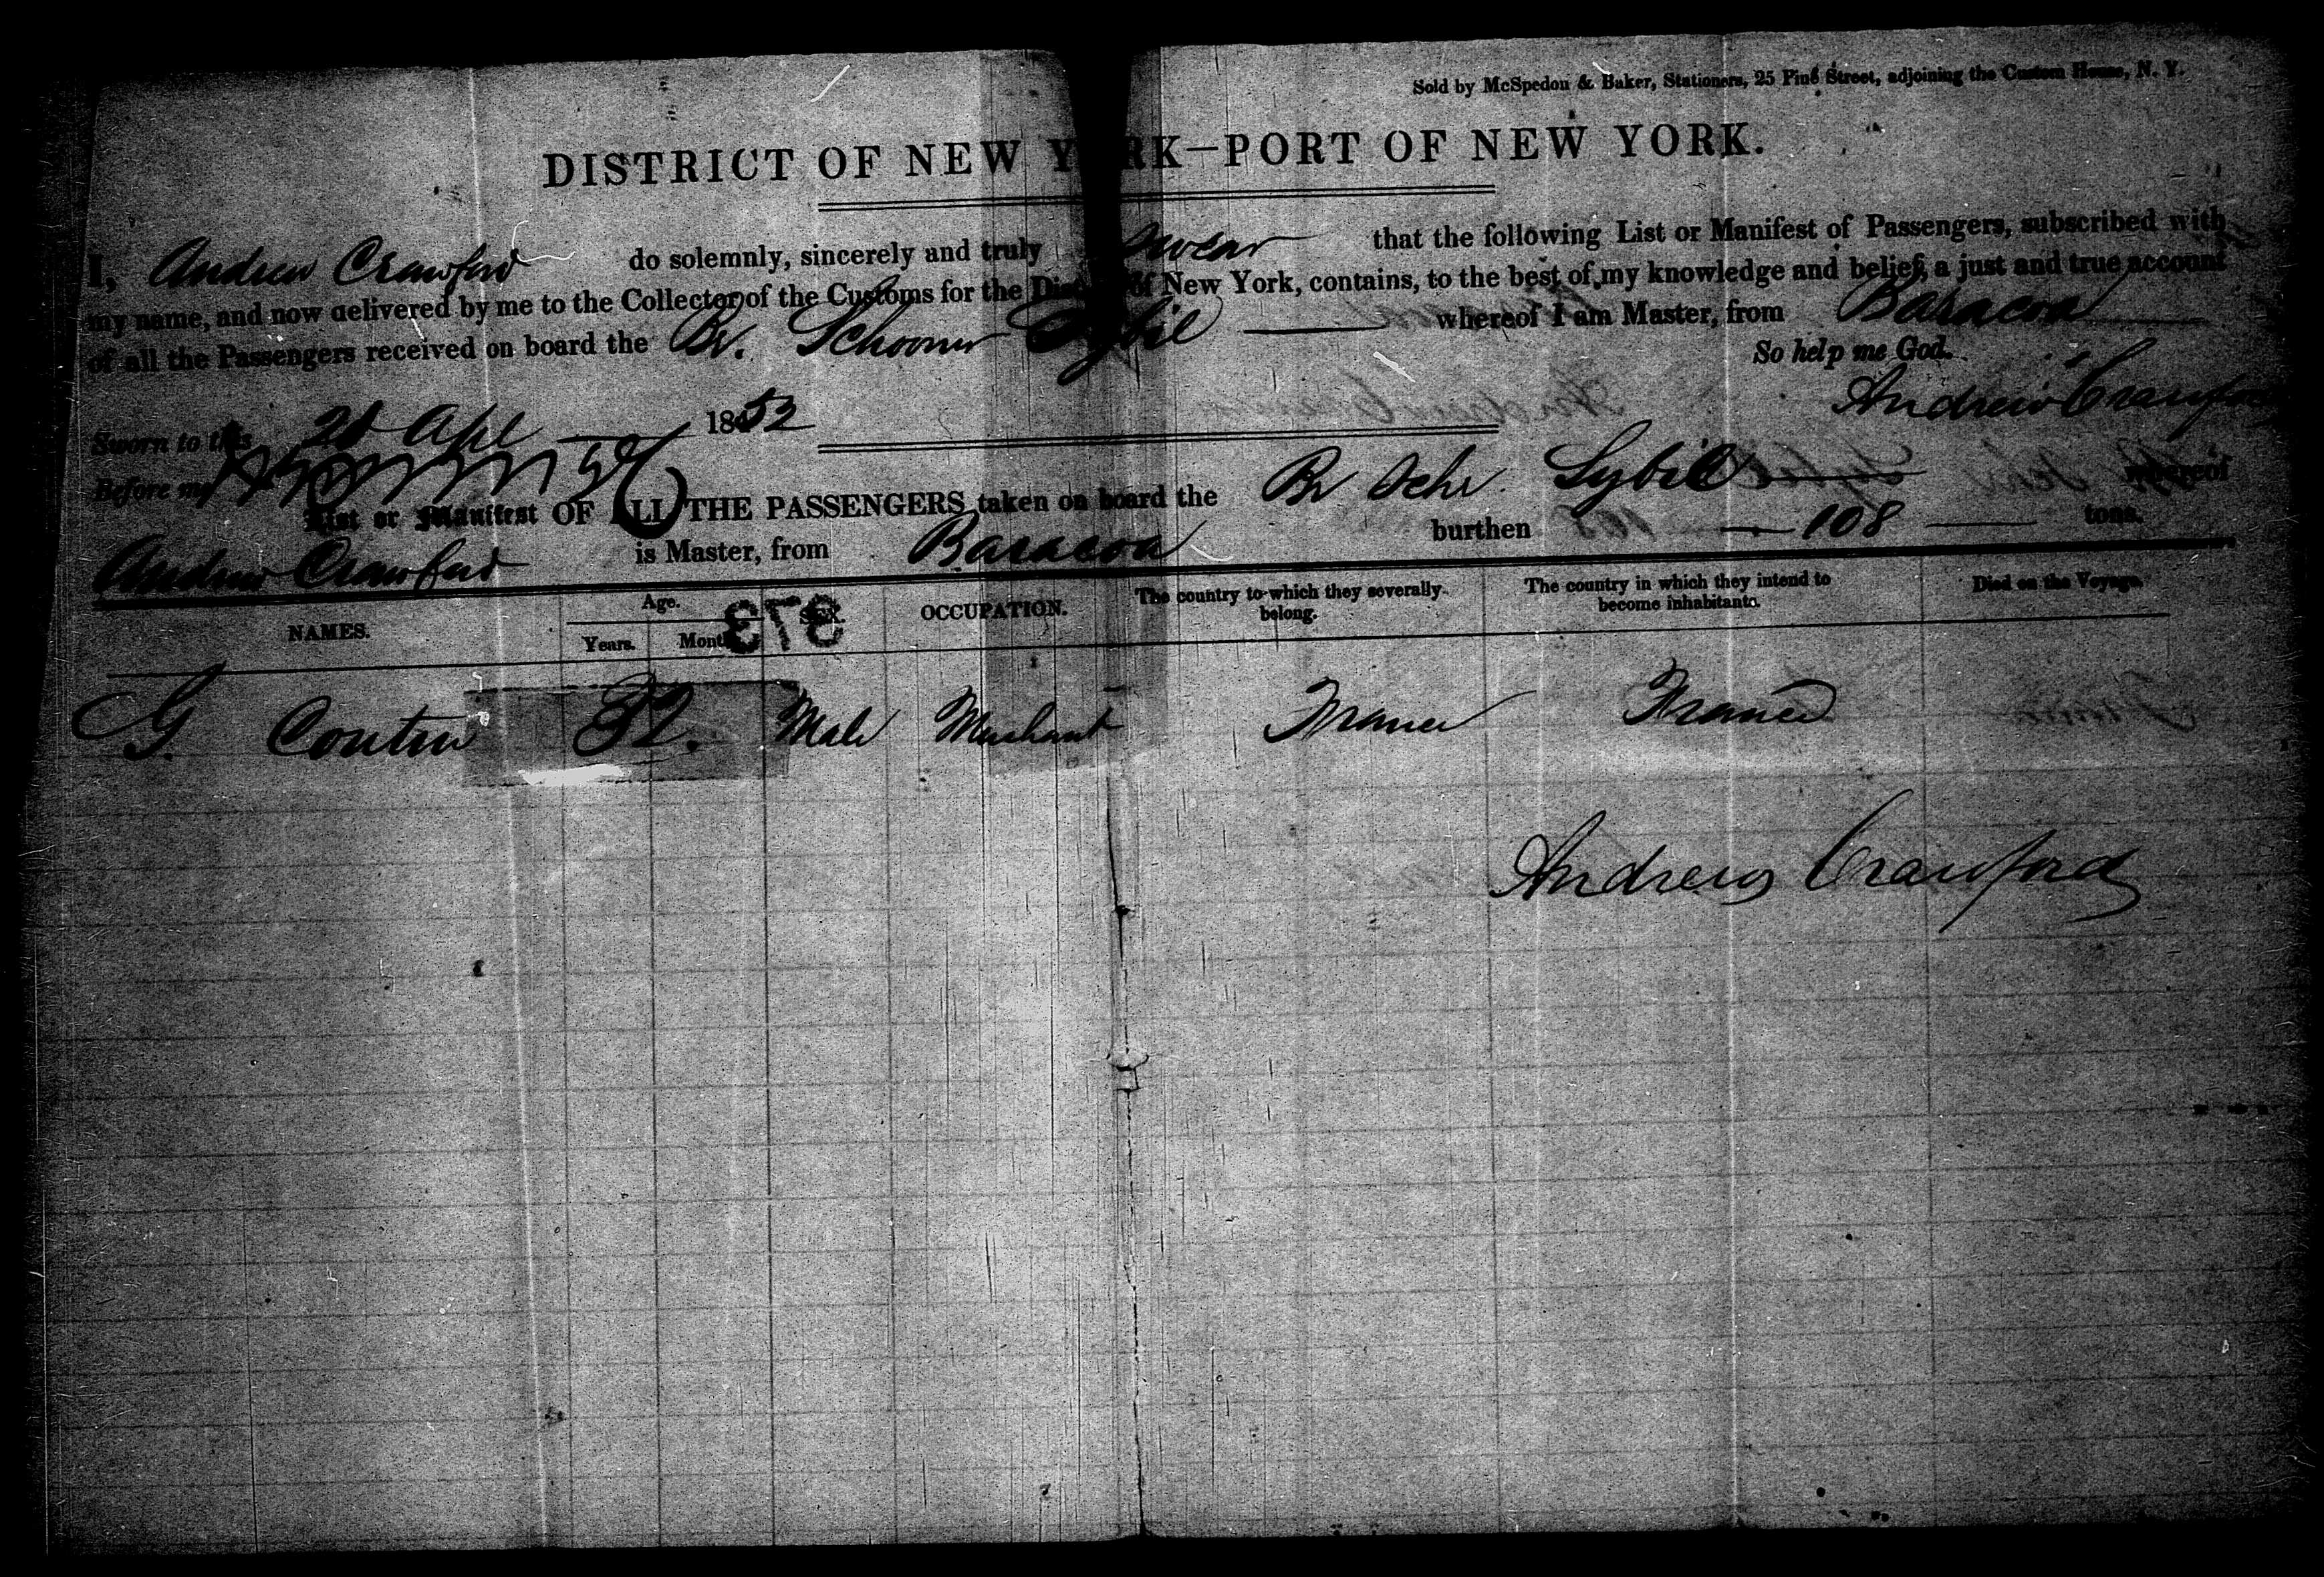 Sold by McSpedon & Baker, Stationers, 25 Pine Street, adjoining the Custom House, N. Y.
DISTRICT OF NEW YORK—PORT OF NEW YORK.
I, Andrew Crawford do solemnly, sincerely and truly swear that the following List or Manifest of Passengers, subscribed with
my name, and now delivered by me to the Collector of the Customs for the District of New York, contains, to the best of my knowledge and belief, a just and true account
of all the Passengers received on board the Br. Schooner Sybil whereof I am Master, from Baracoa
So help me God.
Andrew Crawford
Sworn to this 20 Apl 1852
Before me
List or Manifest OF ALL THE PASSENGERS taken on board the Br Schr. Sybil whereof
Andrew Crawford is Master, from Baracoa burthen 108 tons.
NAMES. Age. Years. Months. SEX. OCCUPATION. The country to which they severally belong. The country in which they intend to become inhabitants. Died on the Voyage.
373
G. 32. Male Merchant France France
Andrew Crawford